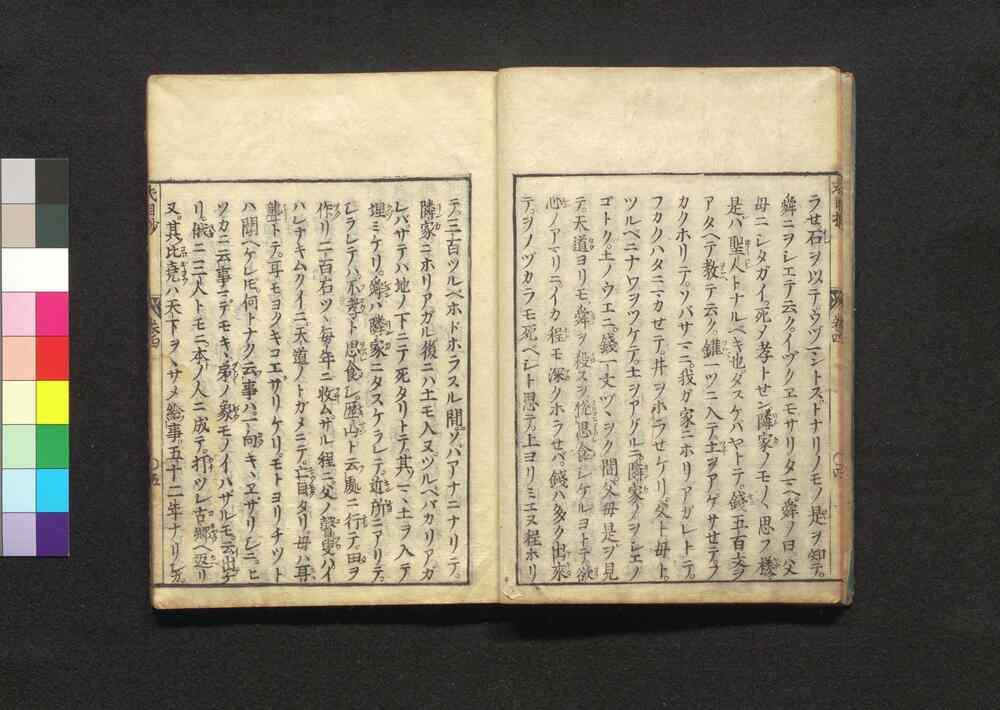 ラせ石ヲ以テウヅマントス、トナリノモノ是ヲ知テ。
舜ニヲシエテ云ク。イヅクエモサリタマヘ舜ノ曰父
母ニシタガイ。死メ孝トせン隣家ノモノ、思フ様
是バ聖人トナルベキ也ダスケバヤトテ。錢五百文ヲ
アタヘテ教テ云ク。鑵一ツニ入テ土ヲアゲサせテフ
カクホリテ。ソバサマニ。我ガ家ニホリアガレトテ。
フカクハタニマカせテ。井ヲホラせケリ。父ト母ト。
ツルベニナワヲツケテ。土ヲアグルニ隣家ノヲシエノ
ゴトク。土ノウエニ。錢一文ヅヽヲク間父母是ヲ見
テ天道ヨリモ。舜ヲ殺スヲ從思食シケルヨトテ欲
心ノアマリニ。イカ程モ深クホラせバ。錢ハ多ク出來
テ。ヲノヅカラモ死ベシト思テ。上ヨリミエヌ程ホリ
テ。三百ツルベホドホラスル間。ソバアナニナリテ。
隣家ニホリアガル後ニハ土モ入ヌツルベバカリアガ
レバサテハ地ノ下ニテ死タリトテ其マヽ土ヲ入テ
埋ミケリ。舜ハ隣家ニタスケラレテ。近所ニアリテ。
シラレテハ不孝ト思食シ。歴山ト云處ニ行テ。田ヲ
作リ二百石ツヽ毎年ニ收ムサル程ニ父ノ瞽叟ハイ
ハレナキムクイニ。天道ノトガメニテ。亡目タリ母ハ耳
聾トテ。耳モヨクキコエザリケリ。モトヨリチツト
ハ聞ヘケレ𪜈何トナク云事ハ一向キヽエザリシニ。ヒ
ソカニ云事マデモキヽ弟ノ象モノイハザルモ云出テ
リ。俄ニ三人トモニ本ノ人ニ成テ。打ツレ古郷ヘ返リ
又其比堯ハ天下ヲヽサメ給事。五十二年ナリシガ。
卷四
卷四
〇五